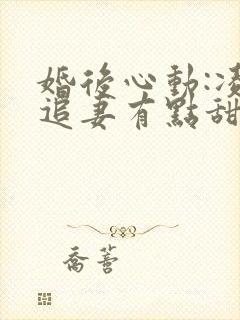 婚後心動:凌
追妻有點甜
喬蕾